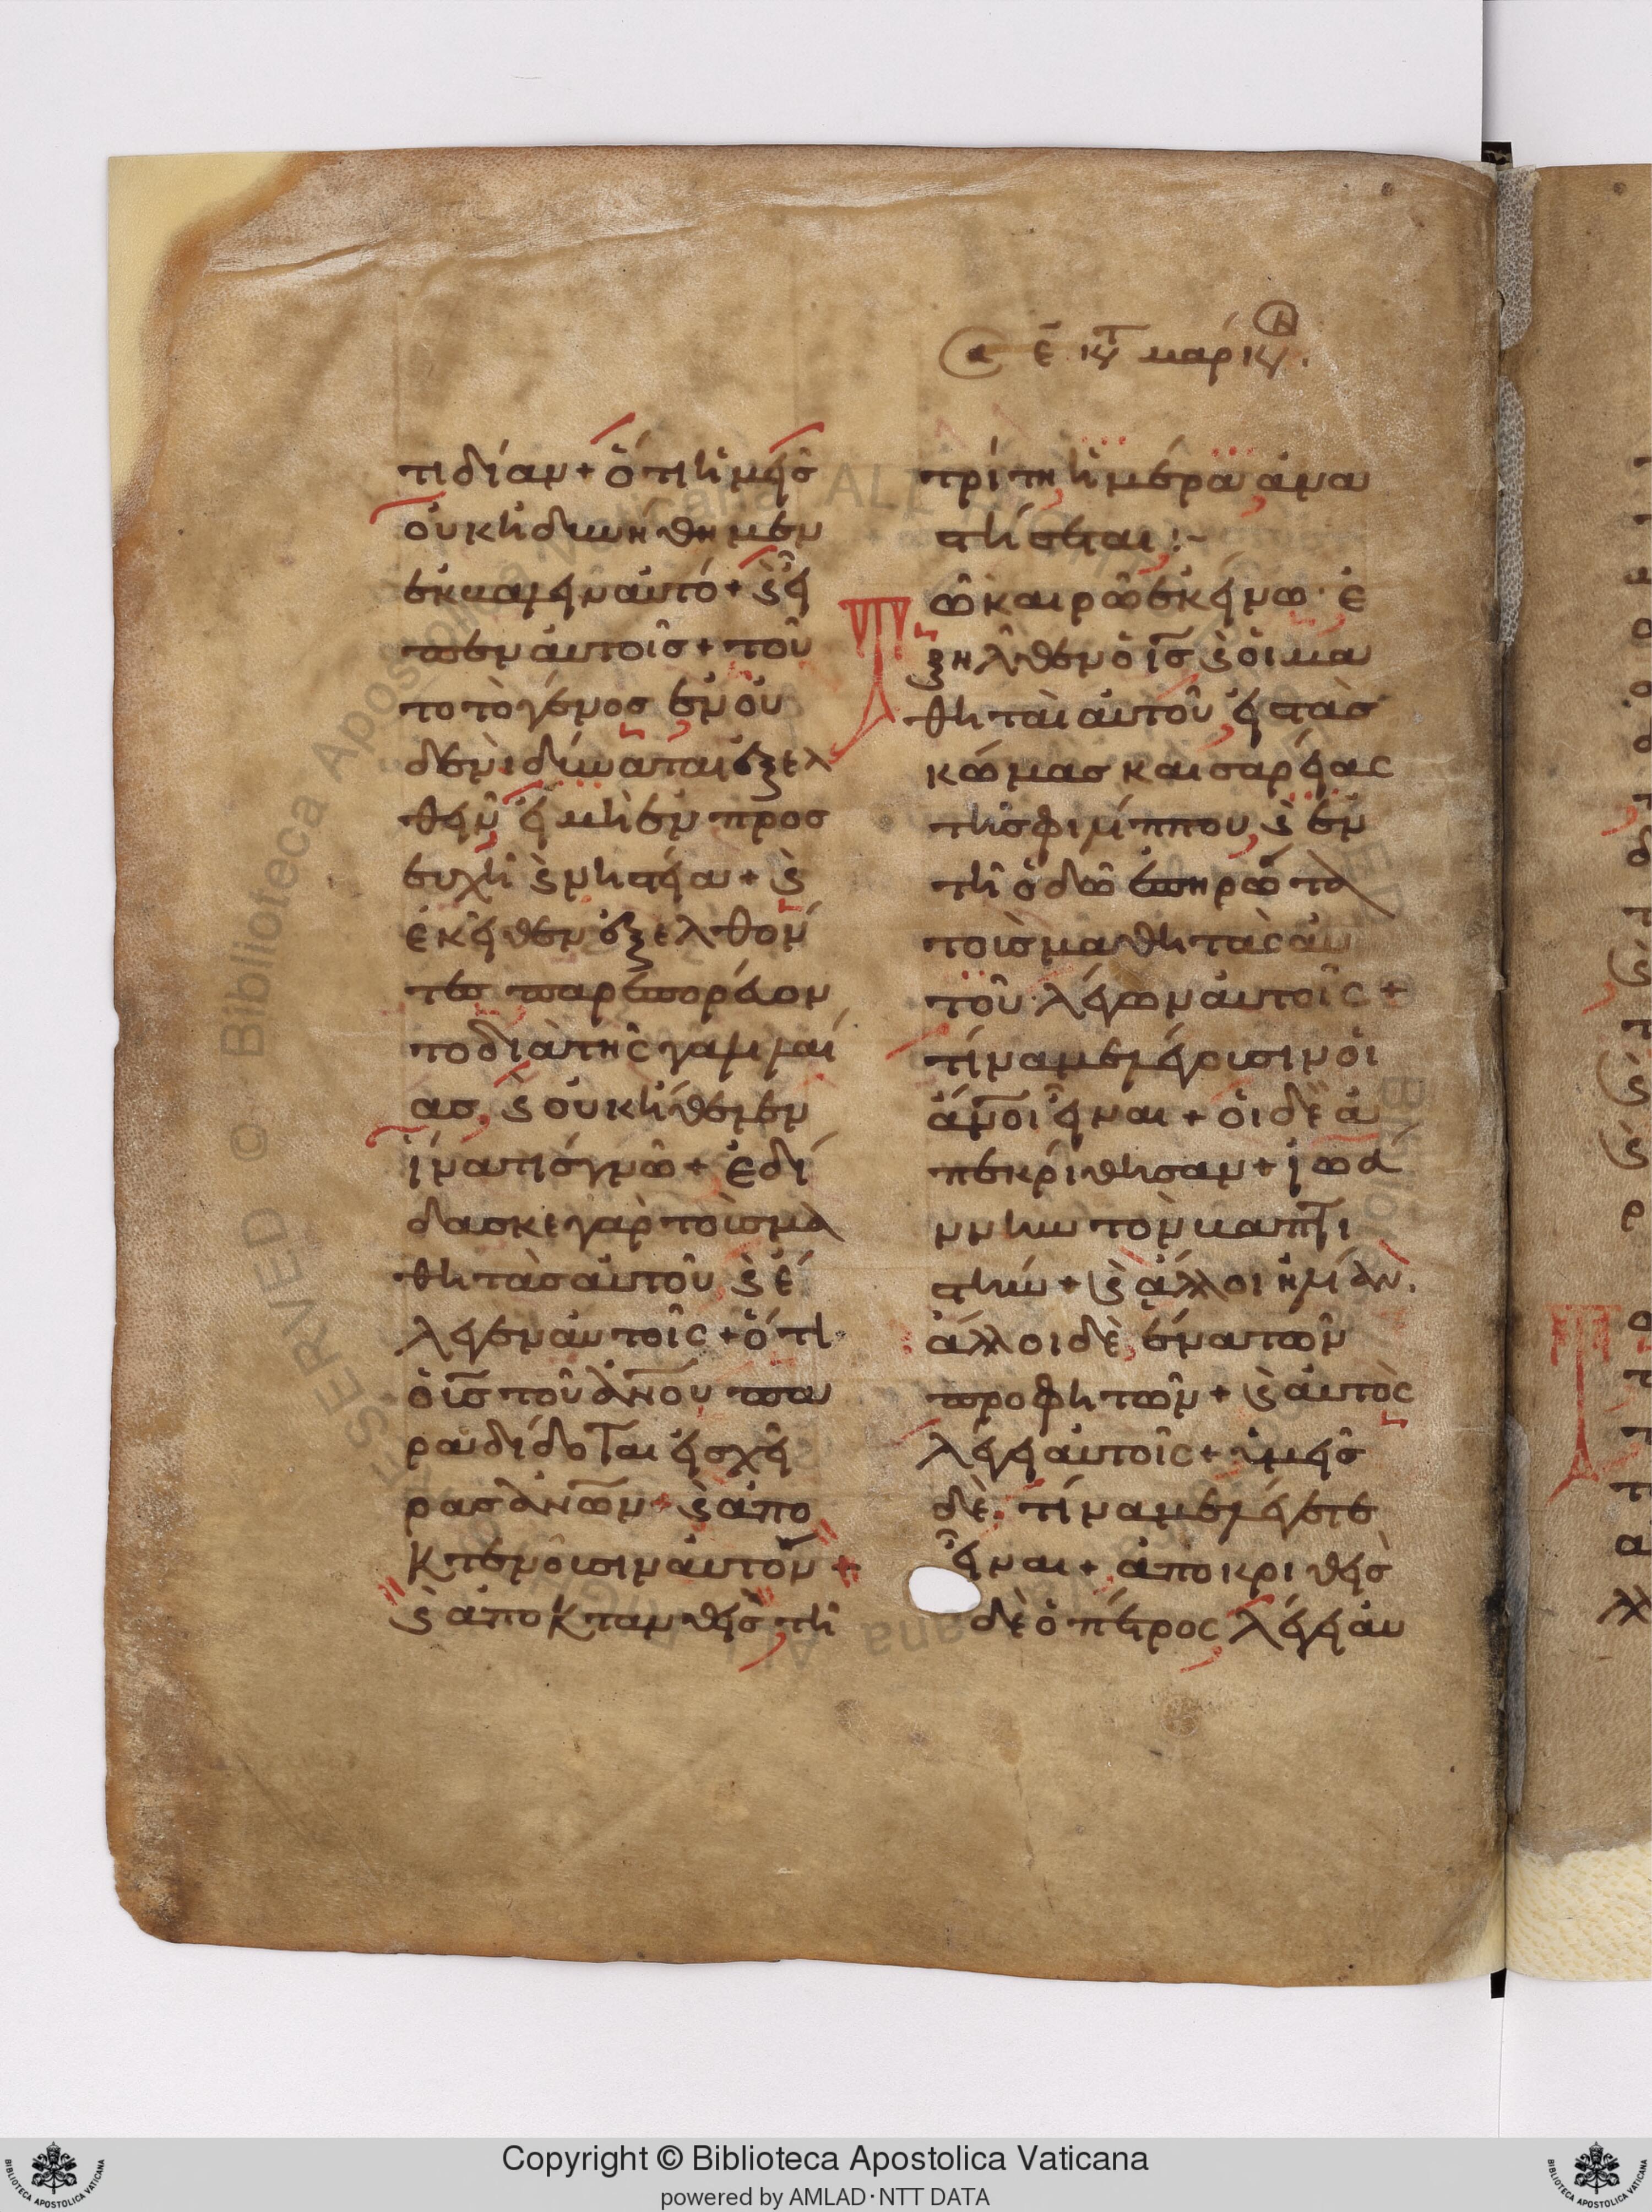 τιδίαν + ὅτι ἡμεῖς
οὐκ ἠδυνήθημεν
ἐκβαλεῖν αὐτό + ϗ εἶ
πεν αὐτοῖς + τοῦ
το τὸ γένος ἐν οὐ
δενὶ δύναται ἐξελ
θεῖν εἰ μὴ ἐν προσ
ευχῆ ϗ νηστεία + ϗ
ἐκεῖθεν ἐξελθόν
τες παρεπορεύον
το διὰ τῆς γαλιλαί
ας, ϗ οὐκ ἤθελεν
ἵνα τὶς γνῶ + ἐδί
δασκε γὰρ τοὺς μα
θητὰς αὐτοῦ, ϗ ἔ
λεγεν αὐτοῖς + ὅτι
ὁ ις τοῦ ανου πα
ραδίδοται εἰς χεῖ
ρας ανων + ϗ ἀπο
κτενοῦσιν αὐτόν +
ϗ ἀποκτανθεὶς τῆ
α ε κτ μάρκον.
τρίτη ἡμέρα ἀνα
στήσεται :~
Τῶ καιρῶ ἐκείνω · ἐ
ξῆλθεν ὁ ις ϗ οἱ μα
θηταὶ αὐτοῦ εἰς τὰς
κώμας καισαρείας
τῆς φιλίππου, ϗ ἐν
τῆ ὁδῶ ἐπηρώτα
τοὺς μαθητὰς αὐ
τοῦ λέγων αὐτοῖς +
τίνα με λέγουσιν οἱ
ανοι εἶναι + οἱ δὲ ἀ
πεκρίθησαν + ἰωά
ννην τὸν βαπτι
στήν + ϗ ἄλλοι ἠλίαν.
ἄλλοι δὲ, ἕνα τῶν
προφητῶν + ϗ αὐτὸς
λέγει αὐτοῖς + ὑμεῖς
δὲ τίνα με λέγετε
εἶναι + ἀποκριθεὶς
δὲ ὁ πέτρος λέγει αὐ
Copyright © Biblioteca Apostolica Vaticana
powered by AMLAD·NTT DATA